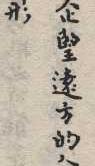 企望遠方的人
形，